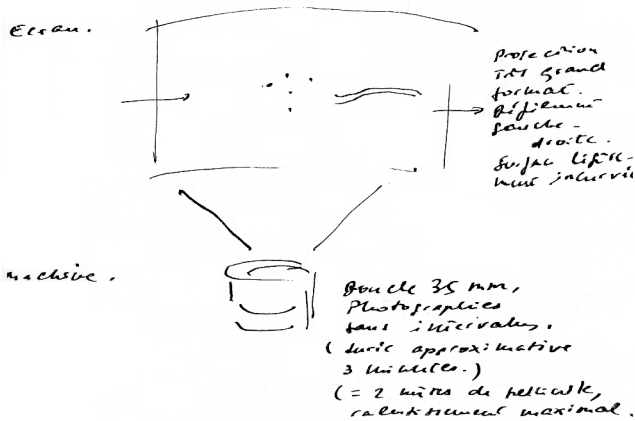 Ecran.
Projection
très grand
format.
Défilement
gauche-
droite.
Surface légère-
ment incurvée
machine.
Boucle 35 mm,
Photographies
sans intervalles.
(durée approximative
3 minutes.)
(= 2 mètres de pellicule,
ralentissement maximal.